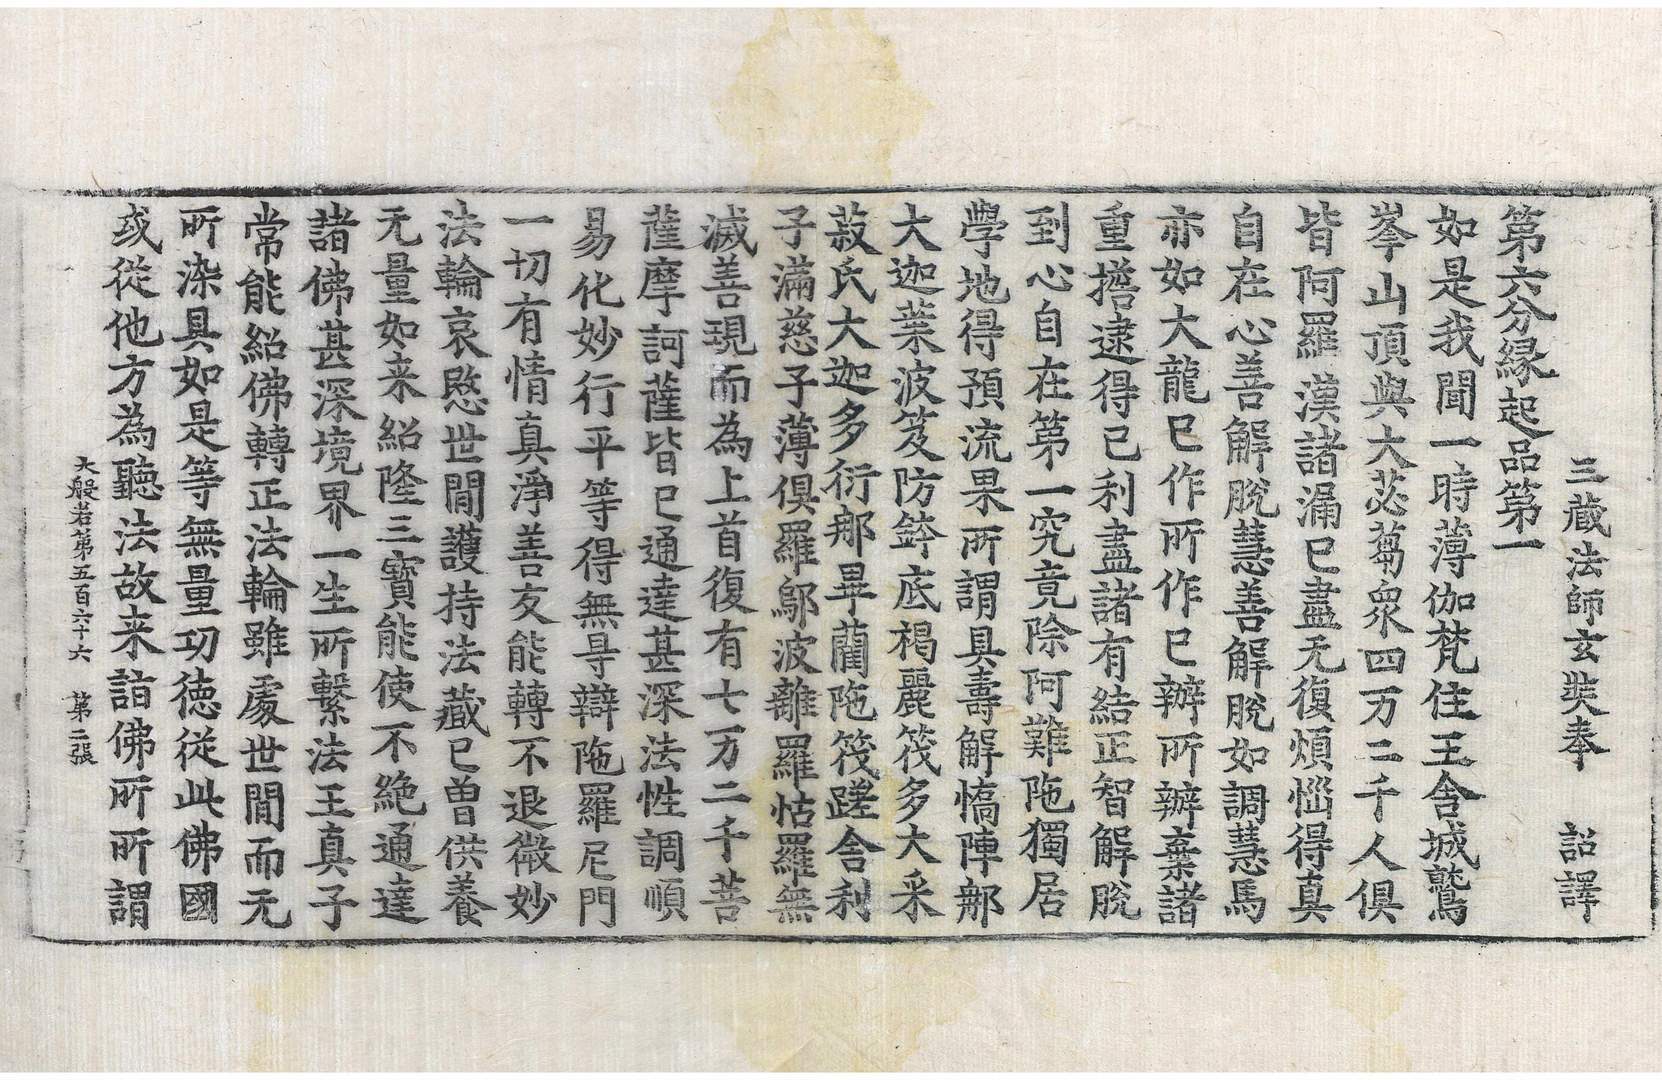 三藏法師玄奘奉　詔譯
第六分縁起品第一
如是我聞一時薄伽梵住王舍城鷲
峯山頂與大苾蒭衆四万二千人俱
皆阿羅漢諸漏已盡无復煩惱得真
自在心善解脫慧善解脫如調慧馬
亦如大龍已作所作已辦所辦棄諸
重擔逮得己利盡諸有結正智解脫
到心自在第一究竟除阿難陁獨居
學地得預流果所謂具壽解憍陣那
大迦葉波笈防鉢底褐麗筏多大采
菽氏大迦多衍那畢藺陁筏蹉舍利
子滿慈子薄俱羅鄔波離羅怙羅無
滅善現而為上首復有七万二千菩
薩摩訶薩皆已通達甚深法性調順
易化妙行平等得無㝵辯陁羅尼門
一切有情真淨善友能轉不退微妙
法輪哀愍世間護持法藏已曾供養
无量如来紹隆三寳能使不絶通達
諸佛甚深境界一生所繫法王真子
常能紹佛轉正法輪雖處世間而无
所染具如是等無量功德從此佛國
或從他方為聽法故来詣佛所所謂
大般若第五百六十六　第二張